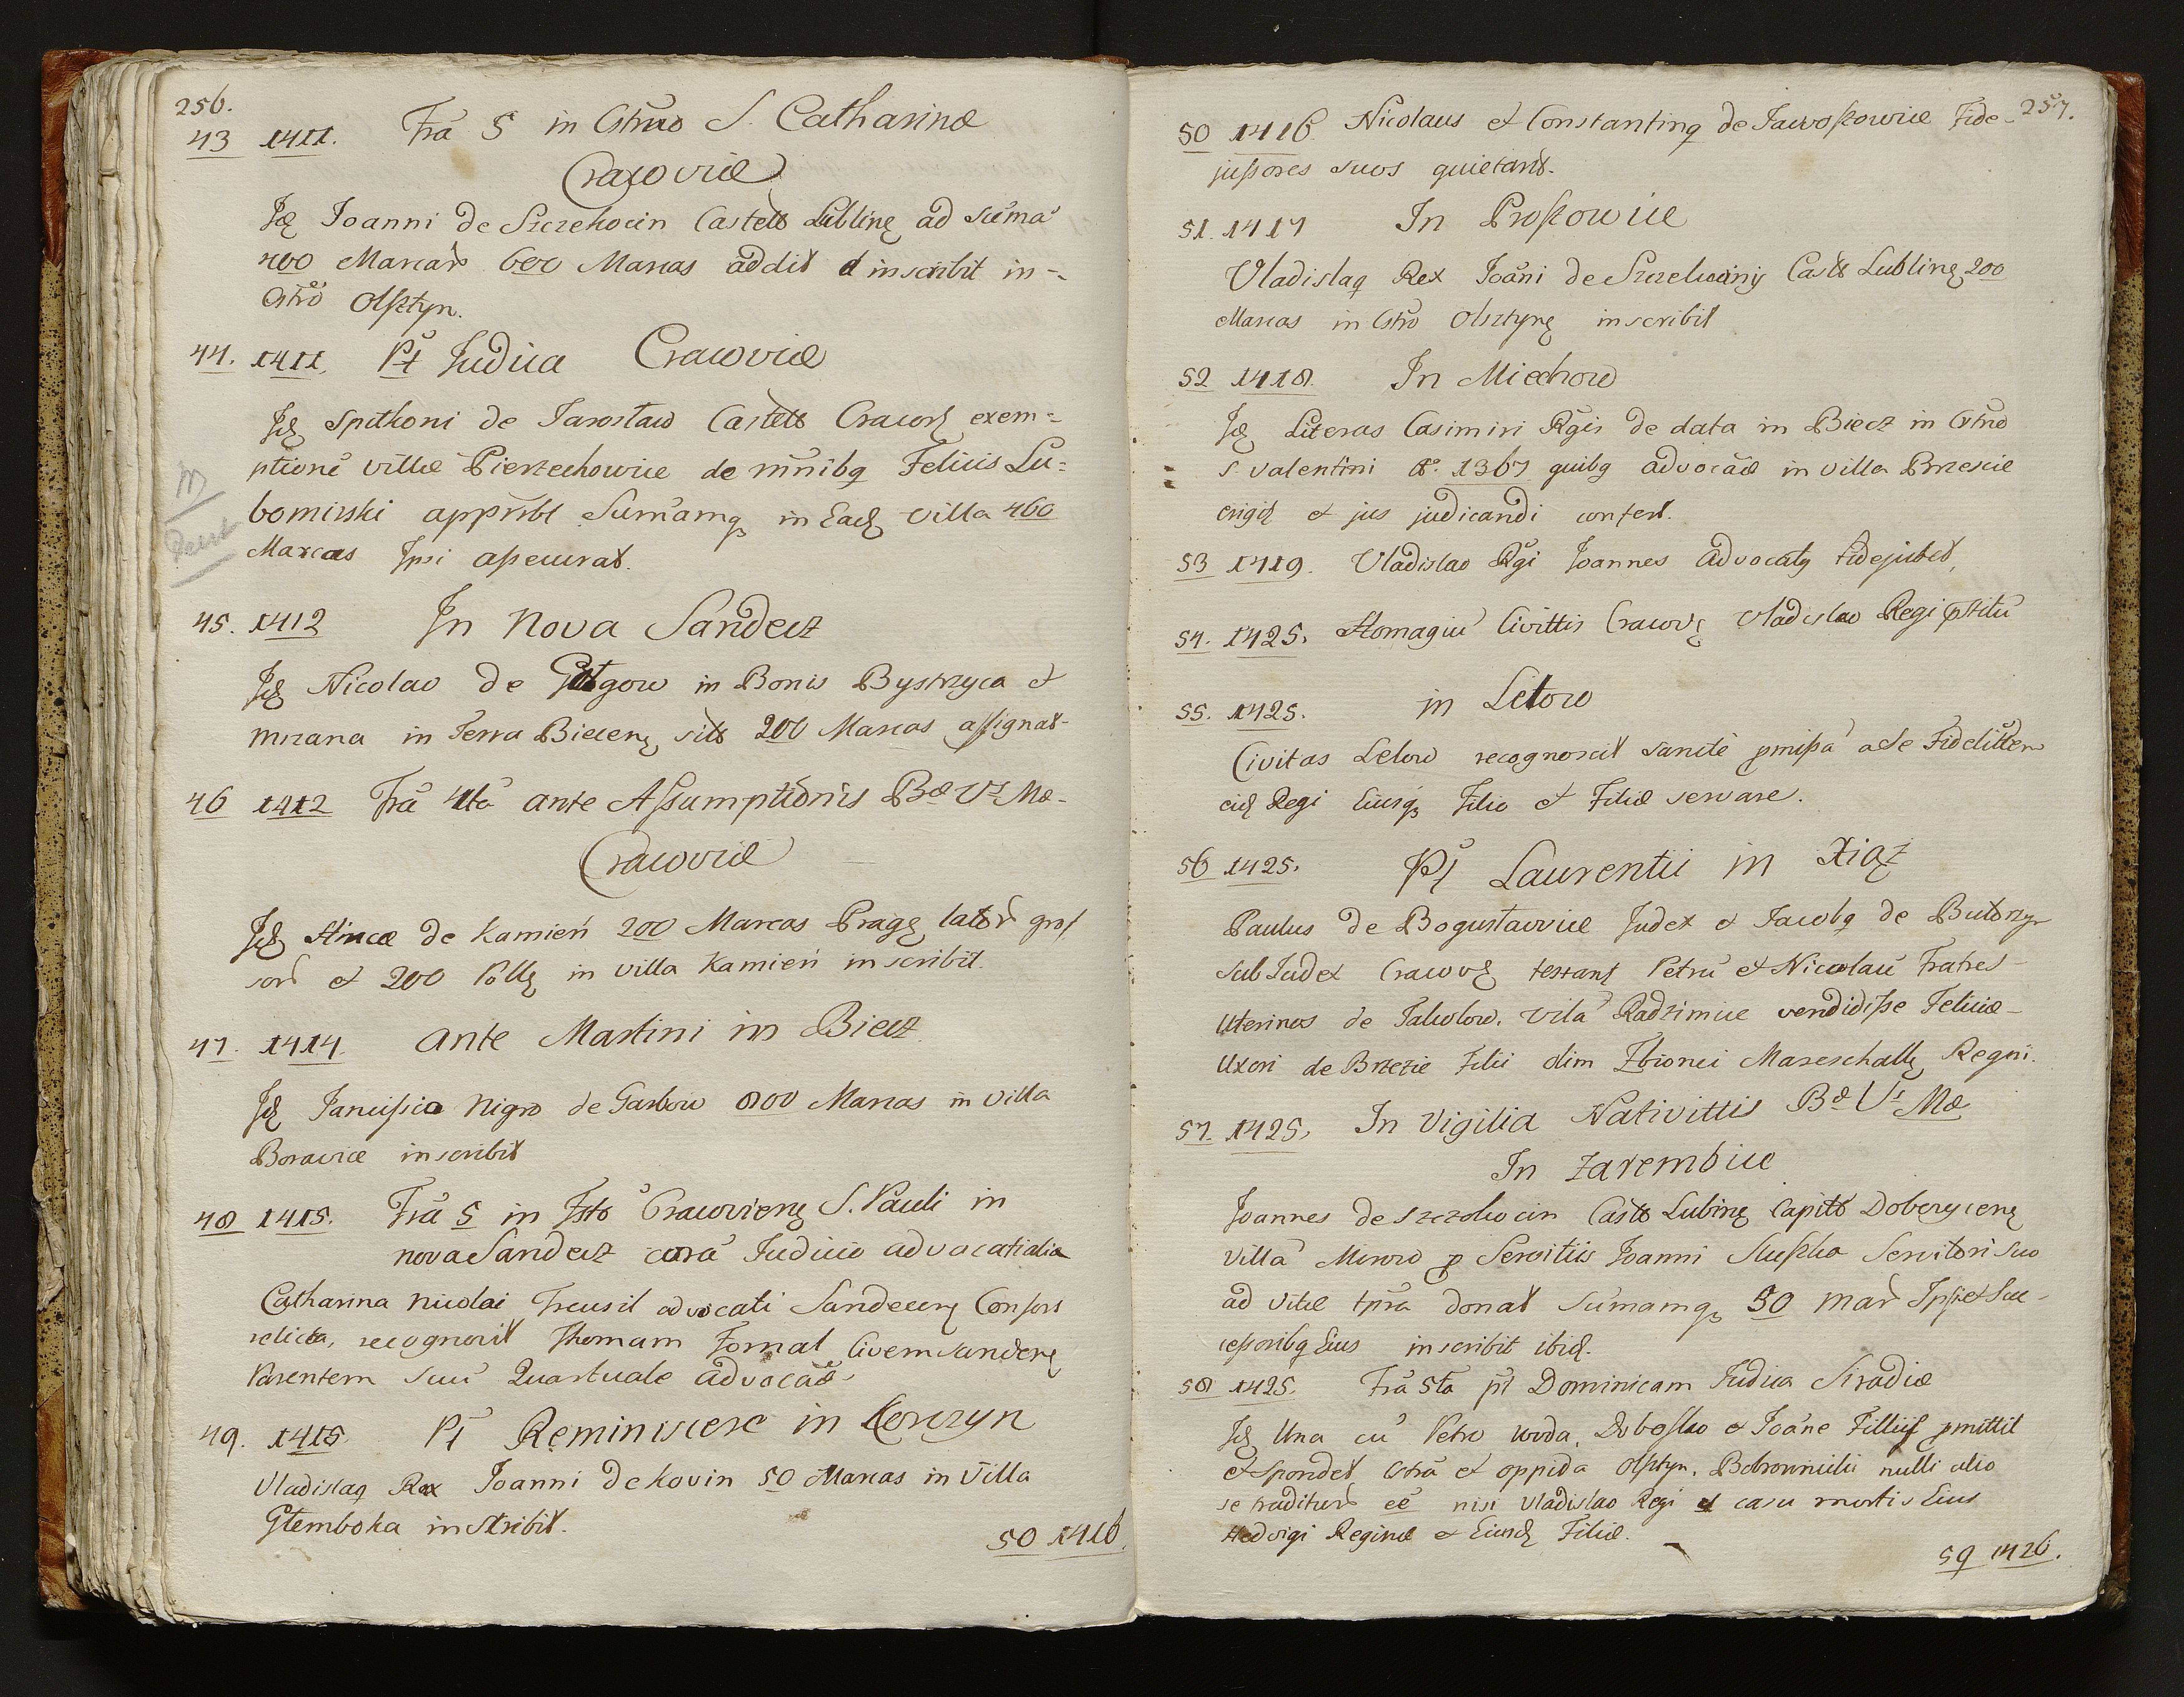 256.
43 1411. Fra 5 in Cstrno S. Catharinæ
Cracoviæ
Id Joanni de Szczekocin Castell Lubline ad Sum̄a
400 Marcar 600 Marcas addit et inscribit in
Cstro Olsztyn.
44. 1411. Pt Judica Cracoviæ
Id Spitkoni de Jarosław Castell Cracov exem=
ptione villæ Pierzechowice de manibq Felicis Lu=
bomirski approbt Sum̄amq in Ead villa 460
Marcas Ipsi assecurat.
45. 1412 In Nova Sandecz
Id Nicolao de in Bonis Bystrzyca et
Mszana in Terra Biecen sitt 200 Marcas assignat
46 1412 Fra 4ta ante Assumptionis Bæ Vs Mæ
Cracoviæ
Id Hincæ de Kamień 200 Marcas Prage lator gros
sor et 200 Polle in villa Kamień inscribit.
47. 1414. ante Martini in Biecz
Id Janussio Nigro de Garbow 800 Marcas in villa
Boravice inscribit
48 1415. Fra 5 in Fsto Cracoviene S. Pauli in
nova Sandecz cora Judicio advocatialia
Catharina Nicolai Freusil advocati Sandecen Consors
relicta, recognovit Thomam Fornal Civem Sandene
Parentem suū Quartuale advocaæ
49. 1415 Pt Reminiscere in Korczyn
Vladislaq Rex Joanni de Kovin 50 Marcas in Villa
Głemboka inscribit.
50 1416.
257.
50 1416 Nicolaus et Constantinq de Jawoszowice Fide
jussores suos quietant.
51. 1417 In Proszowice
Vladislaq Rex Joani de Szczekocinij Castt Lubline 200
Marcas in Cstro Olsztyne inscribit
52 1418. In Miechow
Id Literas Casimiri Rgis de data in Biecz in Cstrno
S. Valentini Ao. 1367 quibq advocaæ in villa Brzescie
erigit et jus judicandi confert.
53 1419. Vladislao Rgi Joannes Advocatq fidejubet,
54. 1425. Homagiū Civittis Cracov Vladislao Regi pstitū
55. 1425. in Lelow
Civitas Lelow recognoscit sancte pmissa a se Fidelitten
eid Regi Eiusq Filio et Filiæ servare.
56 1425. Pt Laurentii in Xiąz
Paulus de Bogusławice Judex et Jacobq de Buto
SubJudex Cracov testant Petrū et Nicolaū Fratres
Uterinos de villa Radzimice vendidisse Feliciæ
Uxori de Brzezie Filii olim Zbionei Mareschalle Regni.
57. 1425. In Vigilia Nativittis Bæ Vs Mæ
In Zarembice
Joannes de Szczekocin Castt Lubine Capitt Dobczycene
Villa Mirow p Servitiis Joanni Servitori Suo
ad vitæ tpra donat Sum̄amq 50 mar Ipsi et Suc
cessoribq Eius inscribit ibid.
58 1425. Fra 5ta pt Dominicam Judica Siradiæ
Id Una cū Petro Woda, Dobeslao et Joane Filiis pmittit
et spondet Cstra et oppida Olsztyn, Bobrownicki nulli alio
se traditur eē nisi Vladislao Regi et casu mortis Eius
Hedvigi Reginæ et Eiusd Filiæ.
59 1426.